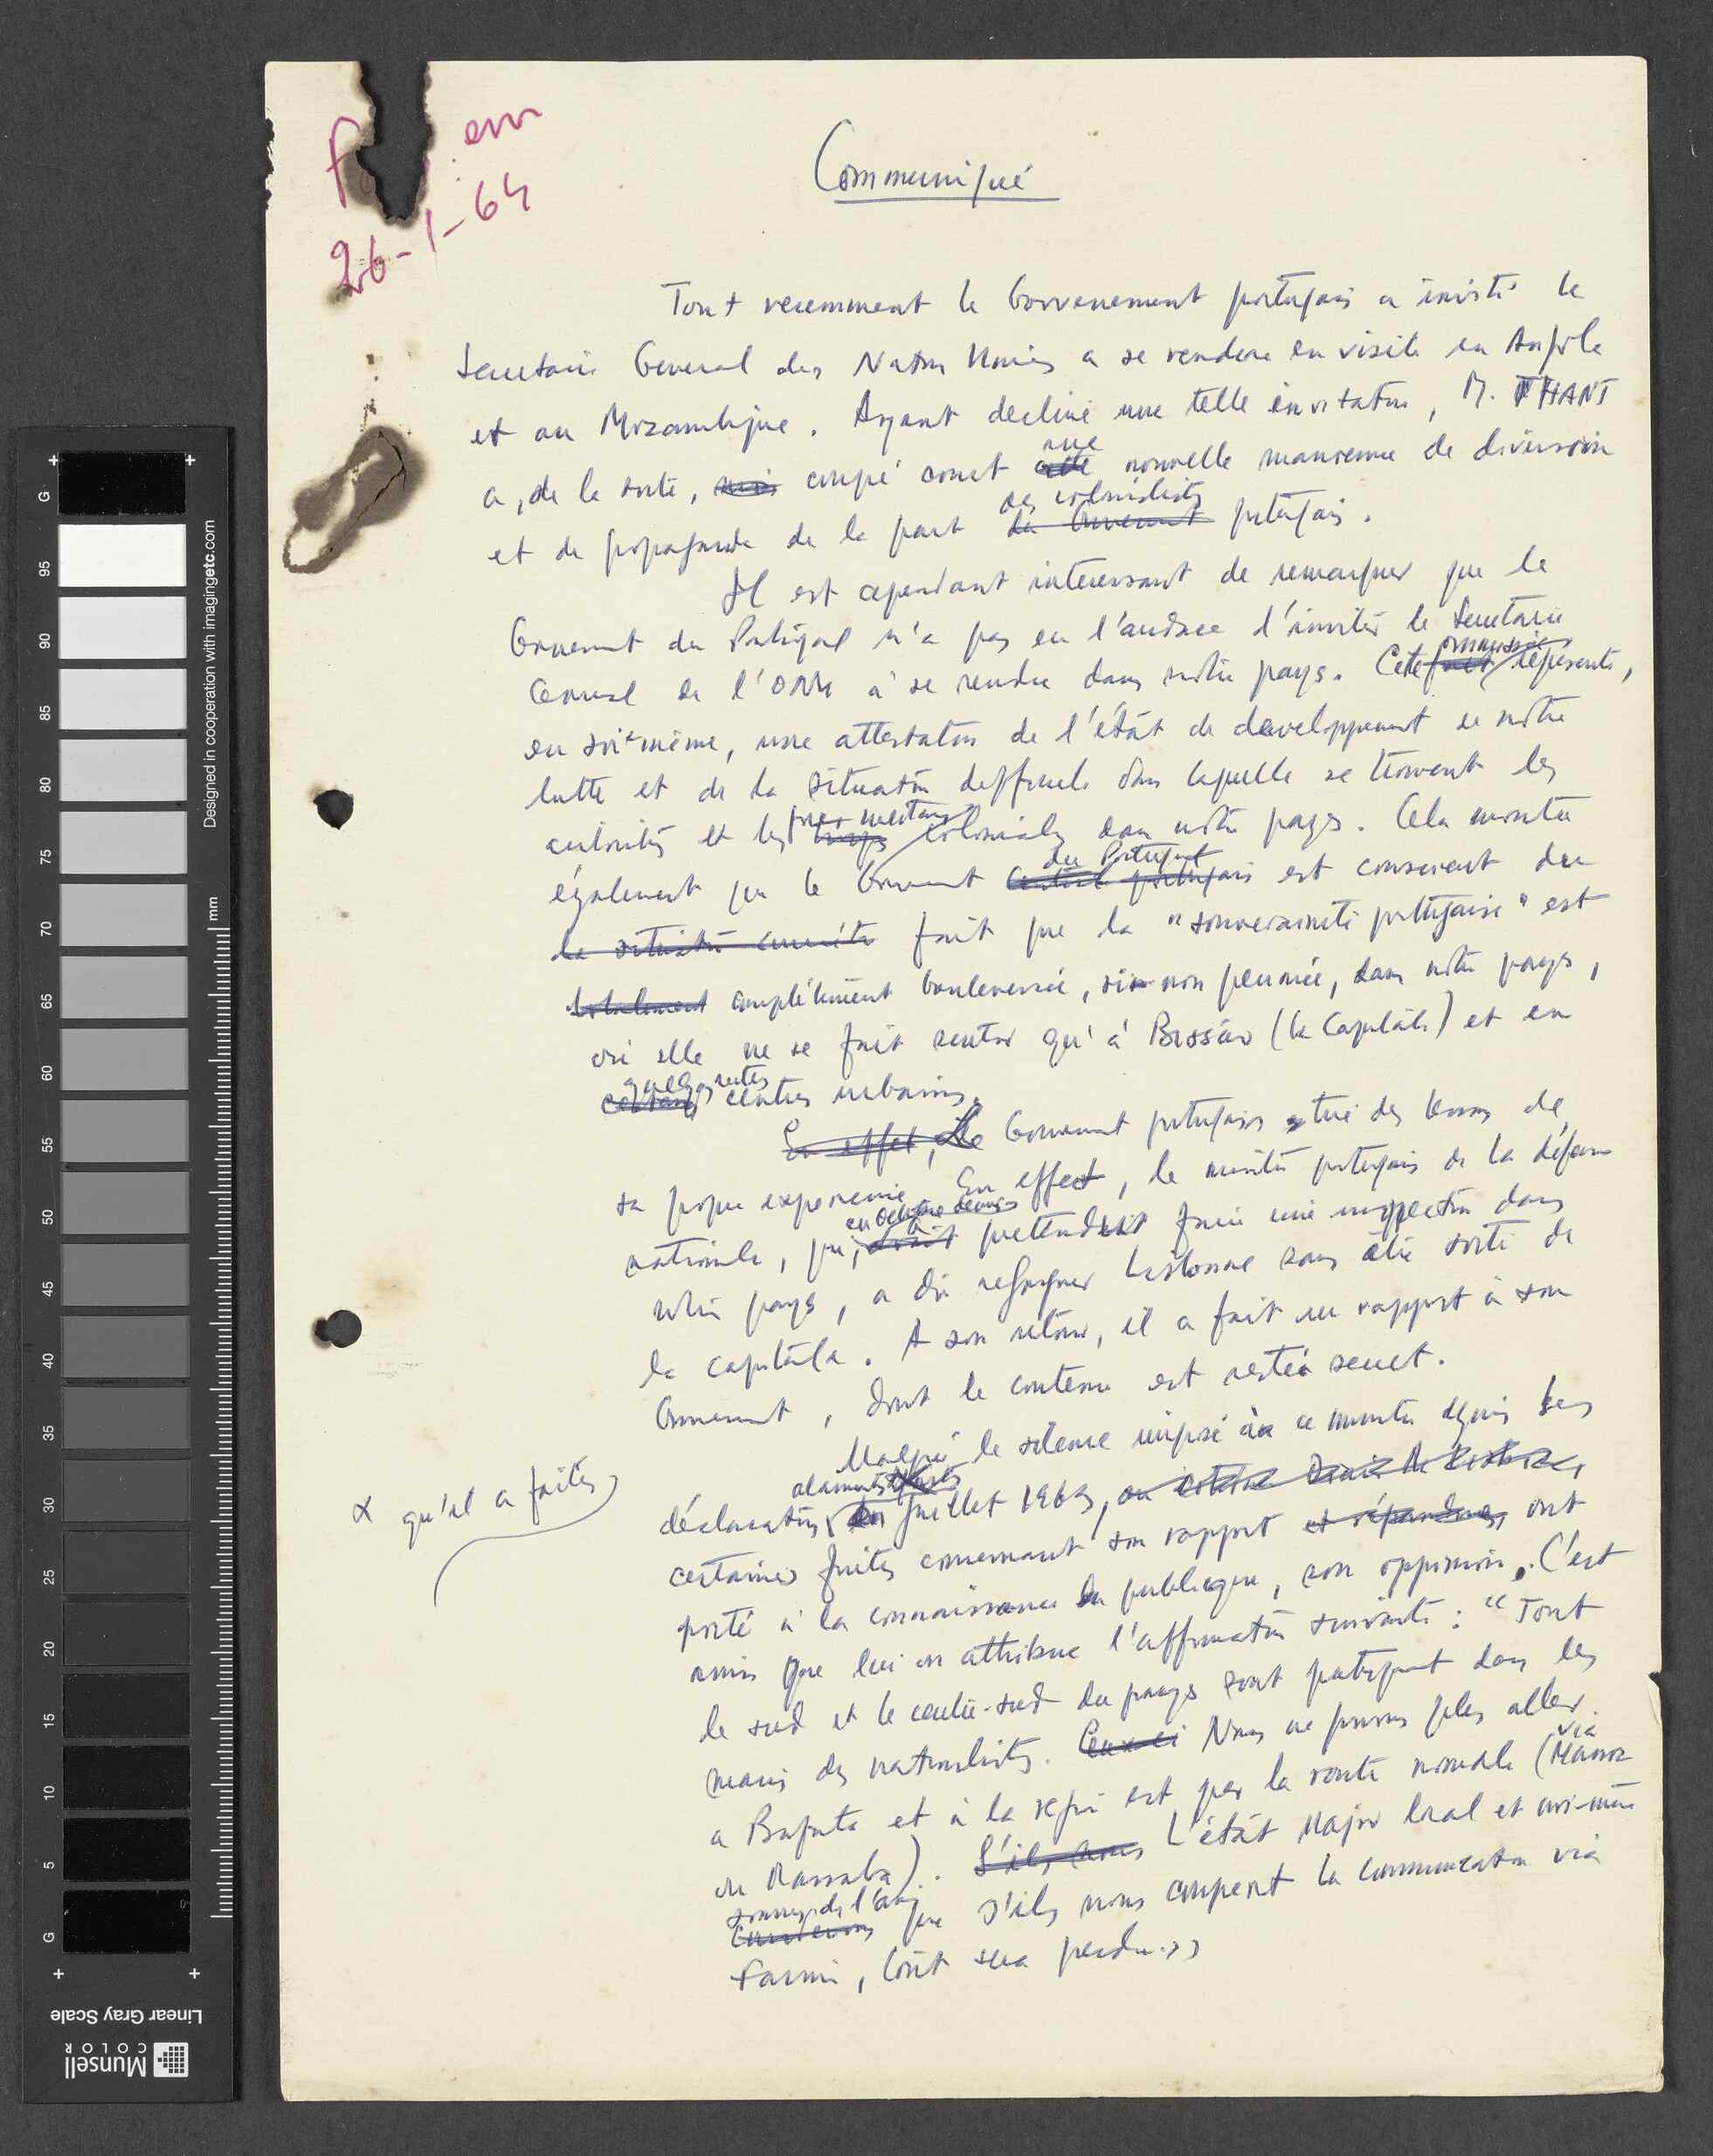 em
26-1-64
Communiqué
Tout recemment le Gouvernement portugais a invité le
Secretaire General des Nations Unies a se rendre en visite en Angola
et au Mozambique. Ayant decliné une telle invitation, M. THANT
a, de la sorte, coupé court une nouvelle manoeuvre de diversion
et de propagande de la part des colonialistes portugais.
Il est cependant interessant de remarquer que le
Gouvernement du Portugal n'a pas eu l'audace d'inviter le Secretaire
General de l'ONU à se rendre dans notre pays. Cette ommission représente,
en soi-même, une attestation de l'état de developpement de notre
lutte et de la situation difficile dans laquelle se trouvent les
autorités et les coloniales dans notre pays. Cela montre
également que le Gouvernement du Portugal est conscient du
la situation fait que la "souveraineté portugaise" est
totalement complètement bouleversée, sinon périmée, dans notre pays,
où elle ne se fait sentir qu'à Bissao (la Capitale) et en
quelques autres centres urbains.
En effet, Le Gouvernement portugais tire des leçons de
sa propre experience. En effect, le ministre portugais de la défense
nationale, qui, en Octobre dernier pretendait faire une inspection dans
notre pays, a dû regagner Lisbonne sans être sorti de
la capitale. A son retour, il a fait un rapport à son
Gouvernement, dont le contenu est resté secret.
Malgré le silence imposé à ce ministre depuis les
déclarations alarmantes Juillet 1963,
x qu'il a faites
certaines fuites concernant son rapport et répandues ont
porté à la connaissance du publique, son oppinion. C'est
ainsi que lui on attribue l'affirmation suivante: "Tout
le sud et le centre-sud du pays sont pratiquement dans les
mains des nationalistes. Ceux-ci Nous ne pouvons plus aller
a Bafata et à la region est par la route normale (via Mansoa
ou Mansaba). S'ils nous L'état Major local et moi-même
sommes de l'avis que s'ils nous coupent la communication via
Farim, tout sera perdu."